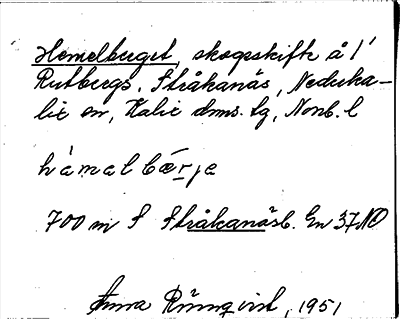 Hemelberget, skogsskifte å 1/
Rutbergs, Stråkanäs, Nederka-
lix sn, Kalix dms. tg, Nonb. l
hàmalbærje
700 m S Stråkanäsb. En 37 NO
Anna Rönnqvist, 1951